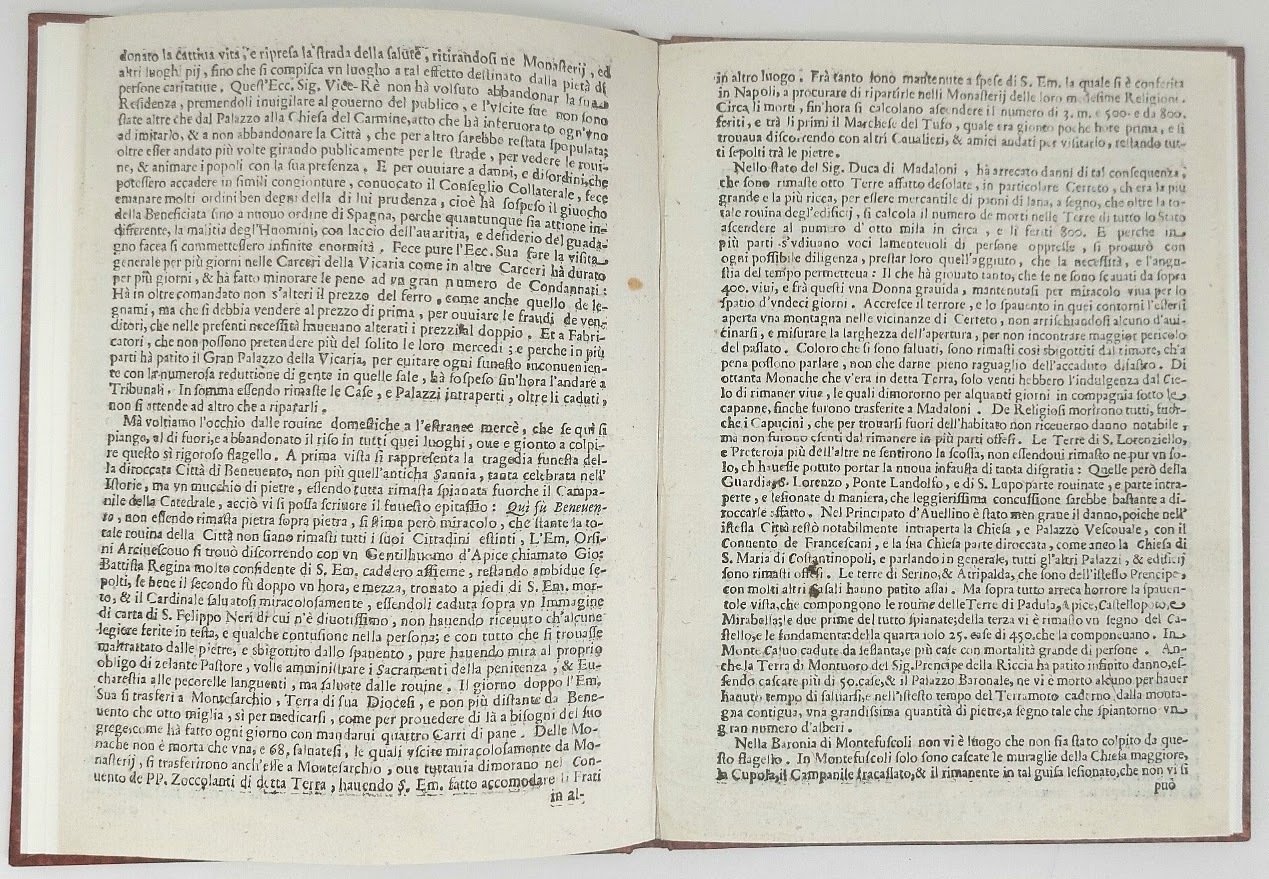 donato la cattiua vita, e ripresa la strada della salute, ritirandosi ne Monasterij, ed
altri luoghi pij, fino che si compisca vn luogho a tal effetto destinato dalla pietà di
persone caritatiue. Quest'Ecc. Sig. Vice-Rè non hà volsuto abbandonar la sua
Residenza, premendoli inuigilare al gouerno del publico, e l'vscite sue non sono
state altre che dal Palazzo alla Chiesa del Carmine, atto che hà inferuorato ogn'vno
ad imitarlo, & a non abbandonare la Città, che per altro sarebbe restata spopulata;
oltre esser andato più volte girando publicamente per le strade, per vedere le roui-
ne, & animare i popoli con la sua presenza. E per ouuiare a danni, e disordini, che
potessero accadere in simili congionture, conuocato il Conseglio Collaterale, fece
emanare molti ordini ben degni della di lui prudenza, cioè hà sospeso il giuocho
della Beneficiata sino a nuouo ordine di Spagna, perche quantunque sia attione in-
differente, la malitia degl'Huomini, con laccio dell'auaritia, e desiderio del guada-
gno facea si commettessero infinite enormità. Fece pure l'Ecc. Sua fare la visita
generale per più giorni nelle Carceri della Vicaria come in altre Carceri hà durato
per più giorni, & hà fatto minorare le pene ad vn gran numero de Condannati:
Hà in oltre comandato non s'alteri il prezzo del ferro, come anche quello de le-
gnami, ma che si debbia vendere al prezzo di prima, per ouuiare le fraudi de ven-
ditori, che nelle presenti necessità haueuano alterati i prezzi al doppio. Et a Fabri-
catori, che non possono pretendere più del solito le loro mercedi; e perche in più
parti hà patito il Gran Palazzo della Vicaria, per euitare ogni funesto inconuenien-
te con la numerosa reduttione di gente in quelle sale, hà sospeso sin'hora l'andare a
Tribunali. In somma essendo rimaste le Case, e Palazzi intraperti, oltre li caduti,
non si attende ad altro che a ripararli.
Mà voltiamo l'occhio dalle rouine domestiche a l'estranee mercè, che se qui si
piange, al di fuori, e abbandonato il riso in tutti quei luoghi, oue e gionto a colpi-
re questo sì rigoroso flagello. A prima vista si rappresenta la tragedia funesta del-
la diroccata Città di Beneuento, non più quell'anticha Sannia, tanta celebrata nell'
Istorie, ma vn mucchio di pietre, essendo tutta rimasta spianata fuorche il Campa-
nile della Catedrale, acciò vi si possa scriuere il funesto epitaffio: Quì fù Beneuen-
to, non essendo rimasta pietra sopra pietra, si stima però miracolo, che stante la to-
tale rouina della Città non siano rimasti tutti i suoi Cittadini estinti, L'Em. Orsi-
ni Arciuescouo si trouò discorrendo con vn Gentilhuomo d'Apice chiamato Gio:
Battista Regina molto confidente di S. Em. caddero assieme, restando ambidue se-
polti, se bene il secondo fù doppo vn hora, e mezza, trouato a piedi di S. Em. mor-
to, & il Cardinale saluatosi miracolosamente, essendoli caduta sopra vn Immagine
di carta di S. Felippo Neri di cui n'è diuotissimo, non hauendo riceuuto ch'alcune
legiere ferite in testa, e qualche contusione nella persona; e con tutto che si trouasse
maltrattato dalle pietre, e sbigottito dallo spauento, pure hauendo mira al proprio
obligo di zelante Pastore, volle amministrare i Sacramenti della penitenza, & Eu-
charestia alle pecorelle languenti, ma saluate dalle rouine. Il giorno doppo l'Em.
Sua si trasferì a Montesarchio, Terra di sua Diocesi, e non più distante da Bene-
uento che otto miglia, sì per medicarsi, come per prouedere di là a bisogni del suo
grege come hà fatto ogni giorno con mandarui quattro Carri di pane. Delle Mo-
nache non è morta che vna, e 68. saluatesi, le quali vscite miracolosamente da Mo-
nasterij, si trasferirono anch'esse a Montesarchio, oue tuttauia dimorano nel Con-
uento de PP. Zoccolanti di detta Terra, hauendo S. Em. fatto accomodare li Frati
in al-
in altro luogo. Frà tanto sono mantenute a spese di S. Em. la quale si è conferita
in Napoli, a procurare di ripartirle nelli Monasterij delle loro medesime Religioni.
Circa li morti, fin'hora si calcolano ascendere il numero di 3. m. e 500. e da 800.
feriti, e trà li primi il Marchese del Tufo, quale era gionto poche hore prima, e si
trouaua discorrendo con altri Caualieri, & amici andati per visitarlo, restando tut-
ti sepolti trà le pietre.
Nello stato del Sig. Duca di Madaloni, hà arrecato danni di tal consequenza,
che sono rimaste otto Terre affatto desolate, in particolare Cerreto, ch era la più
grande e la più ricca, per essere mercantile di panni di lana, a segno, che oltre la to-
tale rouina degl'edificij, si calcola il numero de morti nelle Terre di tutto lo Stato
ascendere al numero d'otto mila in circa, e li feriti 800. E perche in
più parti s'vdiuano voci lamenteuoli di persone oppresse, si procurò con
ogni possibile diligenza, prestar loro quell'aggiuto, che la necessità, e l'angu-
stia del tempo permetteua: Il che hà giouato tanto, che se ne sono scauati da sopra
400. viui, e frà questi vna Donna grauida, mantenutasi per miracolo viua per lo
spatio d'vndeci giorni. Accresce il terrore, e lo spauento in quei contorni l'essersi
aperta vna montagna nelle vicinanze di Cerreto, non arrischiandosi alcuno d'aui-
cinarsi, e misurare la larghezza dell'apertura, per non incontrare maggior pericolo
del passato. Coloro che si sono saluati, sono rimasti così sbigottiti dal timore, ch'a
pena possono parlare, non che darne pieno raguaglio dell'accaduto disastro. Di
ottanta Monache che v'era in detta Terra, solo venti hebbero l'indulgenza dal Cie-
lo di rimaner viue, le quali dimororno per alquanti giorni in compagnia sotto le
capanne, finche furono trasferite a Madaloni. De Religiosi morirono tutti, fuor-
che i Capucini, che per trouarsi fuori dell'habitato non riceuerno danno notabile,
ma non furono esenti dal rimanere in più parti offesi. Le Terre di S. Lorenziello,
e Pretoroja più dell'altre ne sentirono la scossa, non essendoui rimasto ne pur vn so-
lo, ch hauesse potuto portar la nuoua infausta di tanta disgratia: Quelle però della
Guardia, S. Lorenzo, Ponte Landolfo, e di S. Lupo parte rouinate, e parte intra-
perte, e lesionate di maniera, che leggierissima concussione sarebbe bastante a di-
roccarle affatto. Nel Principato d'Auellino è stato men graue il danno, poiche nell'
istessa Città restò notabilmente intraperta la Chiesa, e Palazzo Vescouale, con il
Conuento de Francescani, e la sua Chiesa parte diroccata, come anco la Chiesa di
S. Maria di Costantinopoli, e parlando in generale, tutti gl'altri Palazzi, & edificij
sono rimasti offesi. Le terre di Serino, & Atripalda, che sono dell'istesso Prencipe,
con molti altri Casali hauno patito assai. Ma sopra tutto arreca horrore la spauen-
tole vista, che compongono le rouine delle Terre di Padula, Apice, Castellopoto, e
Mirabella; le due prime del tutto spianate; della terza vi è rimasto vn segno del Ca-
stello, e le fondamenta: della quarta solo 25. case di 450. che la componeuano. In
Monte Caluo cadute da sessanta, e più case con mortalità grande di persone. An-
che la Terra di Montuoro del Sig. Prencipe della Riccia ha patito infinito danno, es-
sendo cascate più di 50. case, & il Palazzo Baronale, ne vi è morto alcuno per hauer
hauuto tempo di saluarsi, e nell'istesso tempo del Terramoto caderno dalla monta-
gna contigua, vna grandissima quantità di pietre, a segno tale che spiantorno vn
gran numero d'alberi.
Nella Baronia di Montefuscoli non vi è luogo che non sia stato colpito da que-
sto flagello. In Montefuscoli solo sono cascate le muraglie della Chiesa maggiore,
la Cupola, il Campanile fracassato, & il rimanente in tal guisa lesionato, che non vi si
può